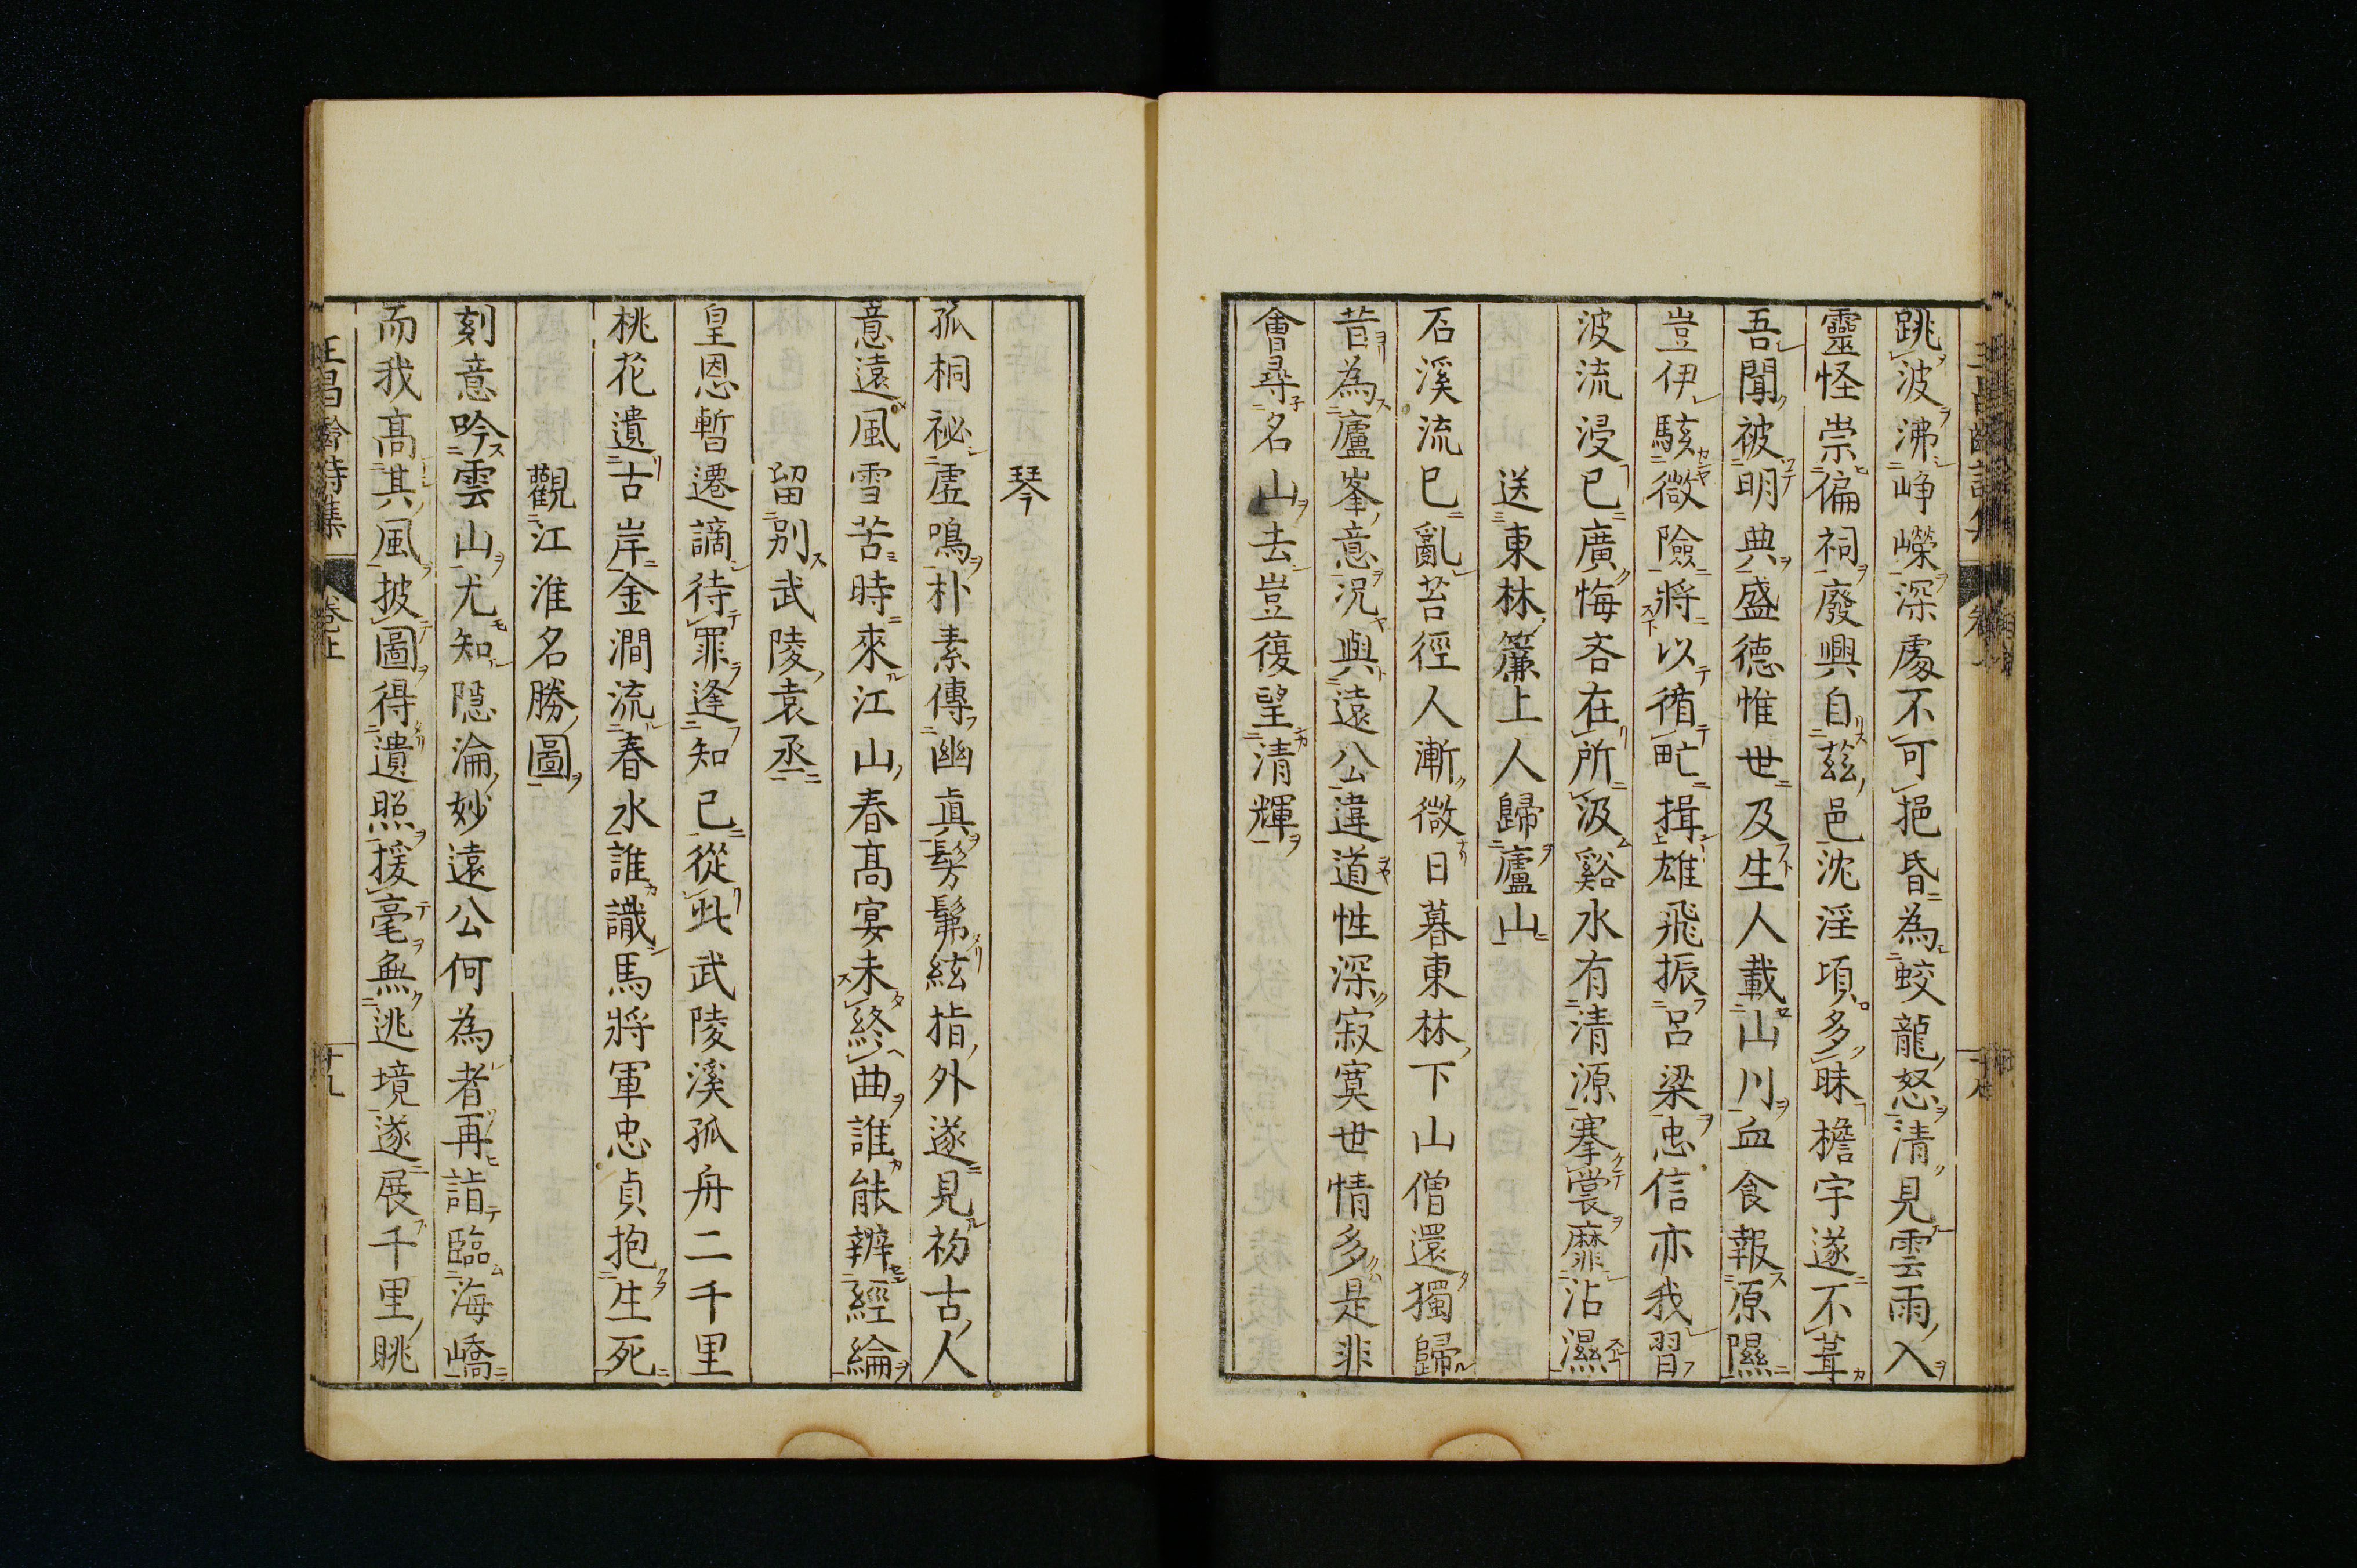 跳波沸崢嶸深處不可挹昏為蛟龍怒清見雲雨入
靈怪崇偏祠廢興自茲邑沈淫頃多昧檐宇遂不葺
吾聞被明典盛德惟世及生人載山川血食報原隰
豈伊駭微險將以循甿揖雄飛振呂梁忠信亦我習
波流浸已廣悔吝在所汲谿水有清源搴裳靡沾濕
送東林簾上人歸廬山
石溪流已亂苔徑人漸微日暮東林下山僧還獨歸
昔為廬峯意況與遠公違道性深寂寞世情多是非
會尋名山去豈復望清輝
琴
孤桐祕虛鳴朴素傳幽真髣髴絃指外遂見初古人
意遠風雪苦時來江山春高宴未終曲誰能辨經綸
留別武陵袁丞
皇恩暫遷謫待罪逢知已從此武陵溪孤舟二千里
桃花遺古岸金澗流春水誰識馬將軍忠貞抱生死
觀江淮名勝圖
刻意吟雲山尤知隱淪妙遠公何為者再詣臨海嶠
而我高其風披圖得遺照援毫無逃境遂展千里眺
王昌齡詩集 卷上 十九